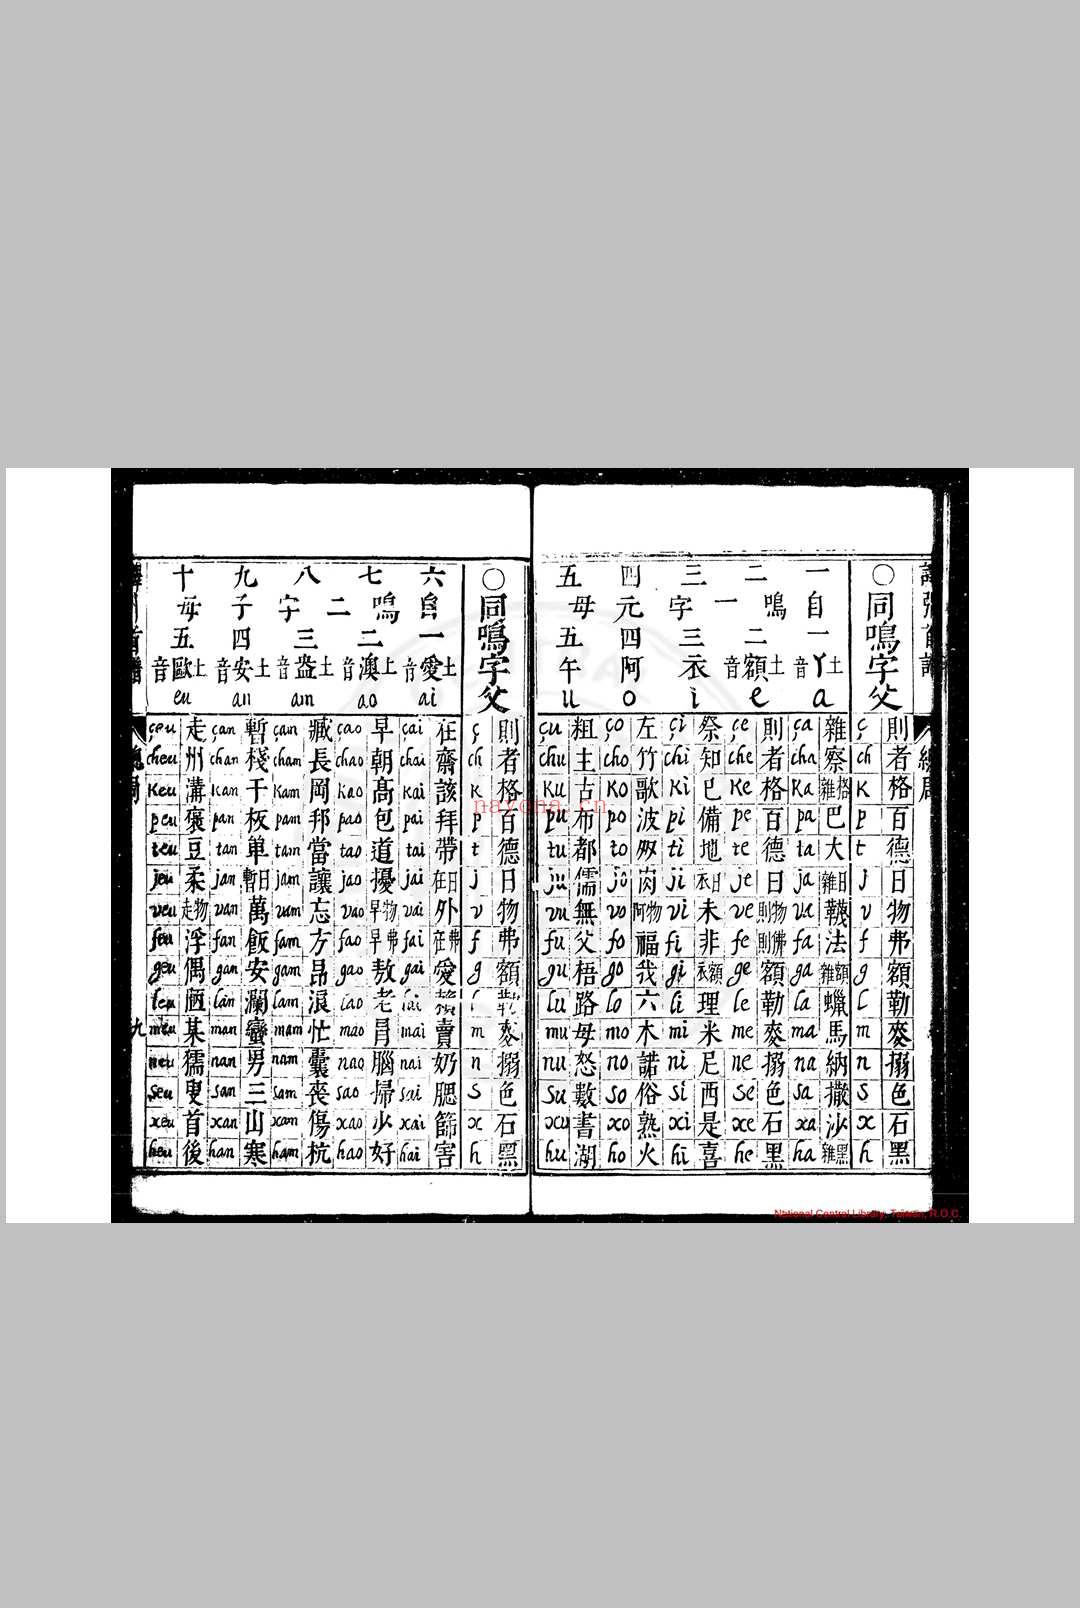 ○同鳴字父
則 ç
者 ch
格 k
百 p
德 t
日 j
物 v
弗 f
額 g
勒 l
麥 m
搦 n
色 s
石 x
黑 h
一 二 三 四 五
自 鳴 字 元 母
一 二 三 四 五
丫 額 衣 阿 午
土音 土音
a e i o u
雜 ça 則 çe 祭 çi 左 ço 粗 çu
察 cha 者 che 知 chi 竹 cho 主 chu
雜格 ka 格 ke 己 ki 歌 ko 古 ku
巴 pa 百 pe 備 pi 波 po 布 pu
大 ta 德 te 地 ti to 都 tu
雜日 ja 日 je 衣日 ji jo 儒 ju
韈 va 則物 ve 未 vi 阿物 vo 無 vu
法 fa 則佛 fe 非 fi 福 fo 父 fu
雜額 ga 額 ge 衣額 gi 我 go 梧 gu
蠟 la 勒 le 理 li 六 lo 路 lu
馬 ma 麥 me 米 mi 木 mo 母 mu
納 na 搦 ne 尼 ni 諾 no 怒 nu
撒 sa 色 se 西 si 俗 so 數 su
沙 xa 石 xe 是 xi 熟 xo 書 xu
雜黑 ha 黑 he 喜 hi 火 ho 湖 hu
○同鳴字父
則 ç
者 ch
格 k
百 p
德 t
日 j
物 v
弗 f
額 g
勒 l
麥 m
搦 n
色 s
石 x
黑 h
六 七 八 九 十
自 鳴 二 字 子 母
一 二 三 四 五
愛 澳 盎 安 歐
土音 土音 土音 土音 土音
ai ao am an eu
在 çai 早 çao 臧 çam 暫 çan 走 çeu
齋 chai 朝 chao 長 cham 棧 chan 州 cheu
該 kai 高 kao 岡 kam 干 kan 溝 keu
拜 pai 包 pao 邦 pam 板 pan 裒 peu
帶 tai 道 tao 當 tam 單 tan 豆 teu
在日 jai 擾 jao 讓 jam 暫日 jan 柔 jeu
外 vai 早物 vao 忘 vam 萬 van 走物 veu
在弗 fai 早弗 fao 方 fam 飯 fan 浮 feu
愛 gai 敖 gao 昂 gam 安 gan 偶 geu
賴 lai 老 lao 浪 lam 瀾 lan leu
賣 mai 冐 mao 忙 mam 蠻 man 某 meu
奶 nai 腦 nao 囊 nam 男 nan 獳 neu
腮 sai 掃 sao 喪 sam 三 san 叟 seu
篩 xai 少 xao 傷 xam 山 xan 首 xeu
害 hai 好 hao 杭 ham 寒 han 後 heu
九
nayona.cn
National Central Library, Taiwan, R.O.C.